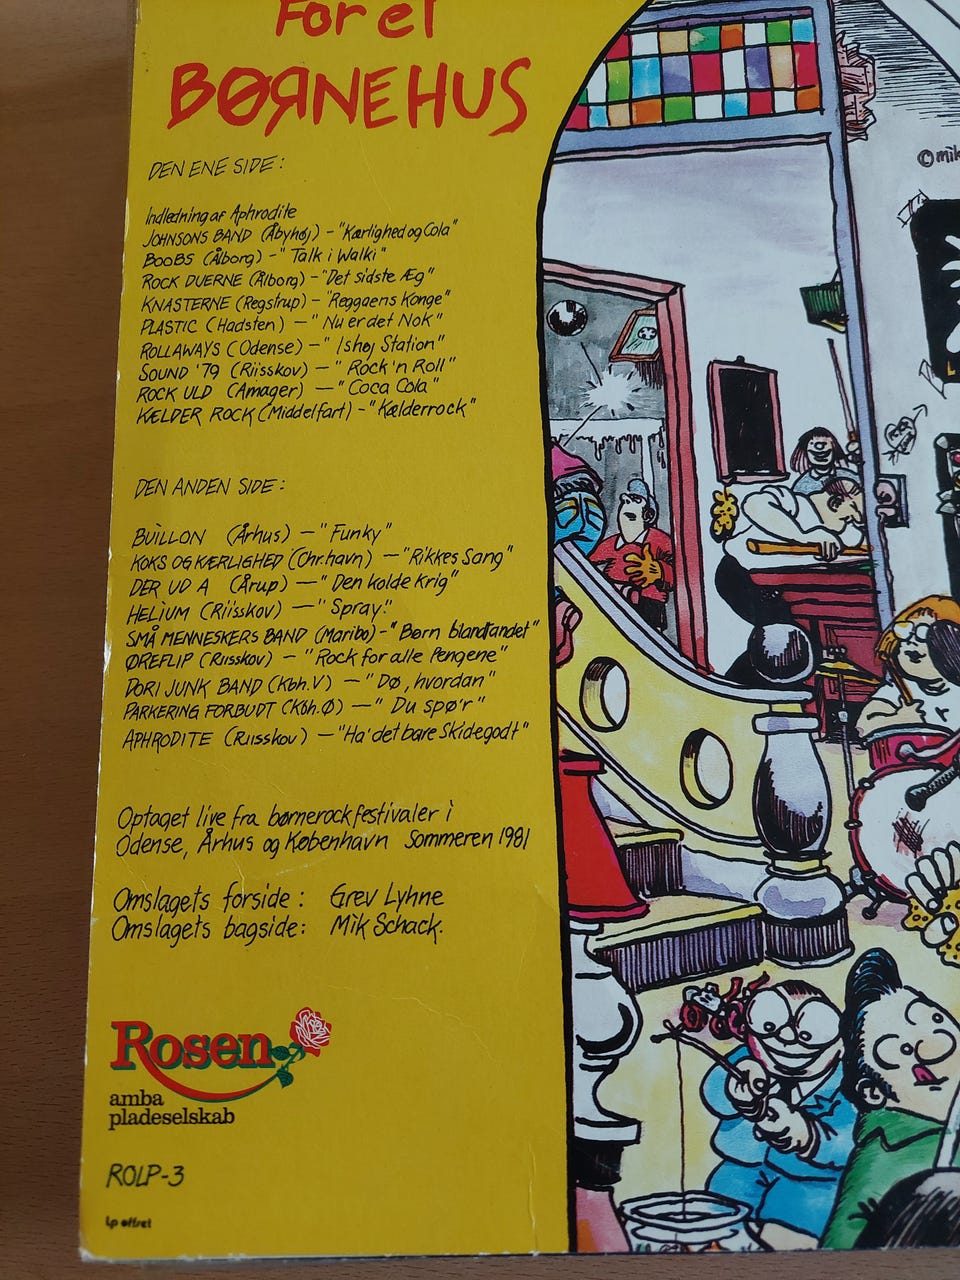 For et
BØRNEHUS
DEN ENE SIDE:
Indledning af Aphrodite
JOHNSONS BAND (Åbyhøj) - "Kærlighed og Cola"
BOOBS (Ålborg) - "Talk i Walki"
ROCK DUERNE (Ålborg) - "Det sidste Æg"
KNASTERNE (Regstrup) - "Reggaens Konge"
PLASTIC (Hadsten) - "Nu er det Nok"
ROLLAWAYS (Odense) - "Ishøj Station"
SOUND '79 (Riisskov) - "Rock'n Roll"
ROCK ULD (Amager) - "Coca Cola"
KÆLDER ROCK (Middelfart) - "Kælderrock"
DEN ANDEN SIDE:
BUILLON (Århus) - "Funky"
KOKS OG KÆRLIGHED (Chr.havn) - "Rikkes Sang"
DER UD A (Årup) - "Den kolde krig"
HELIUM (Riisskov) - "Spray"
SMÅ MENNESKERS BAND (Maribo) - "Børn blandt andet"
ØREFLIP (Riisskov) - "Rock for alle Pengene"
DORI JUNK BAND (Kbh.V) - "Dø, hvordan"
PARKERING FORBUDT (Kbh.Ø) - "Du spø'r"
APHRODITE (Riisskov) - "Ha' det bare Skidegodt"
Optaget live fra børnerockfestivaler i
Odense, Århus og København Sommeren 1981
Omslagets forside: Grev Lyhne
Omslagets bagside: Mik Schack.
Rosen
amba
pladeselskab
ROLP-3
Lp offset
©mik